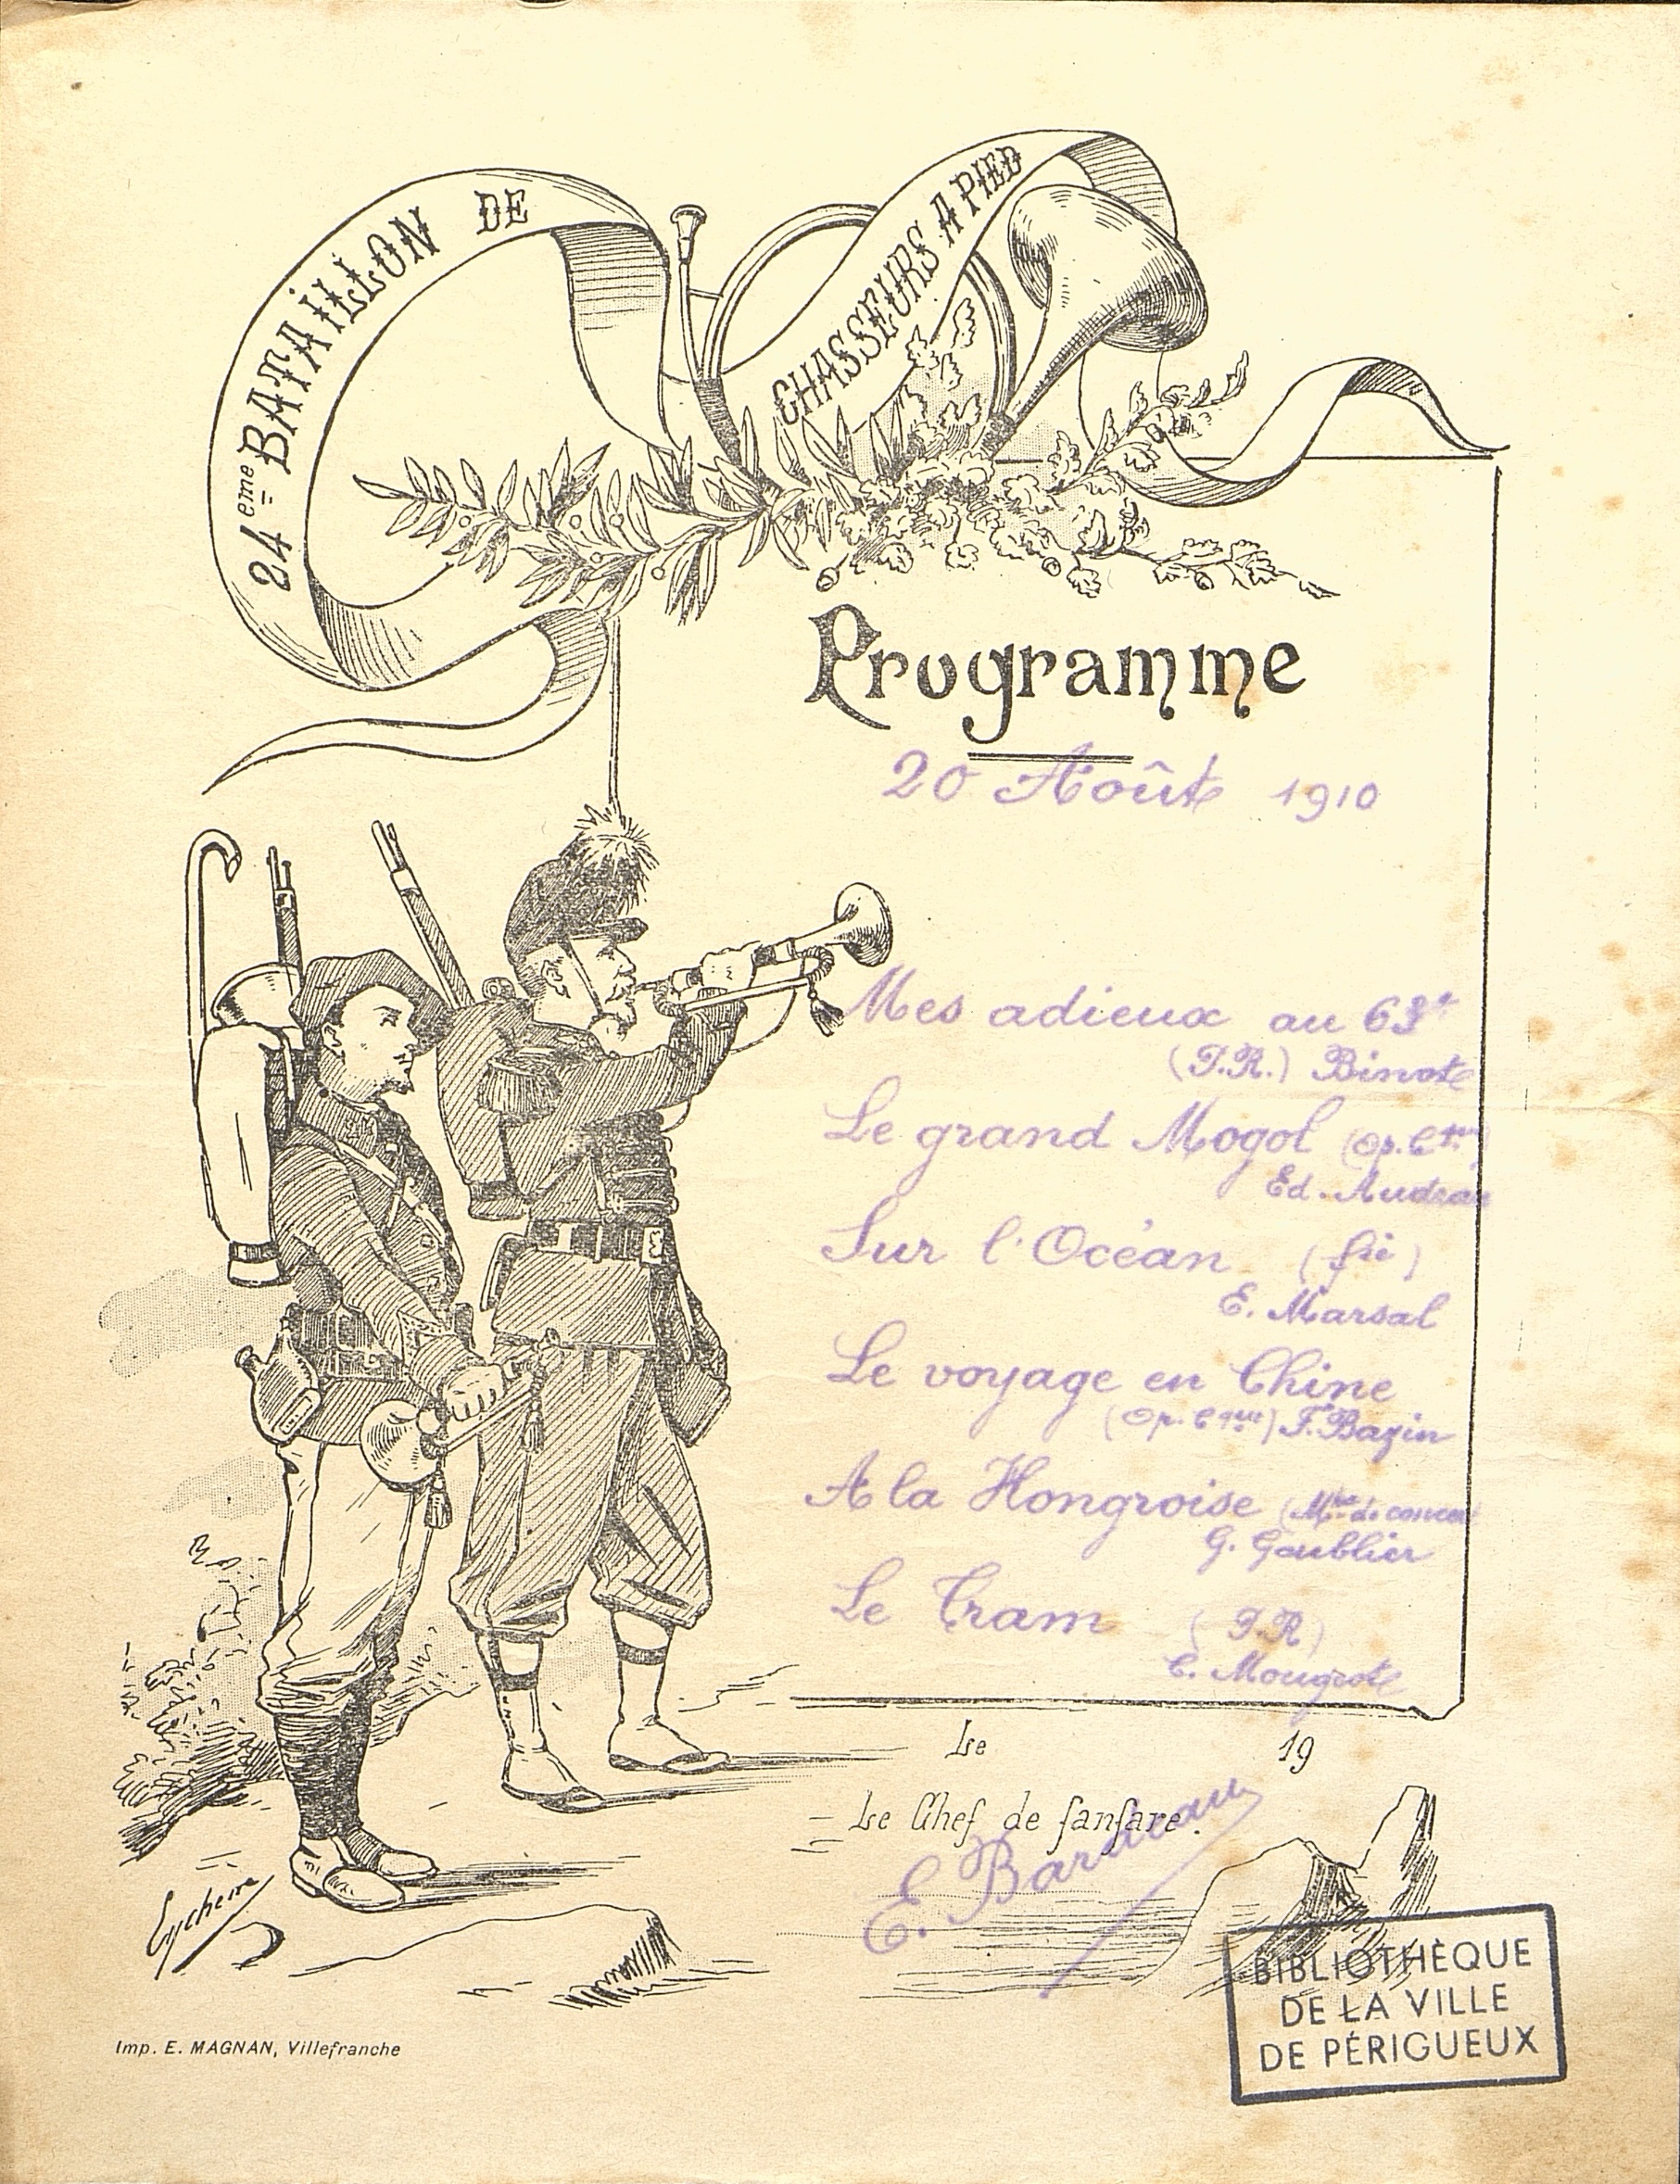 24ème BATAILLON DE
CHASSEURS A PIED
Programme
20 Août 1910
Mes adieux au 63e
(P.R.) Binot
Le grand Mogol (Op. Cque)
Ed. Audran
Sur l'Océan (fie)
E. Marsal
Le voyage en Chine
(Op. Cque) F. Bazin
A la Hongroise (Mche de concert
G. Goublier
Le Tram (P.R)
E. Mougeot
Le 19
Le Chef de fanfare.
E. Bardeau
Eychenne
BIBLIOTHÈQUE
DE LA VILLE
DE PÉRIGUEUX
Imp. E. MAGNAN, Villefranche